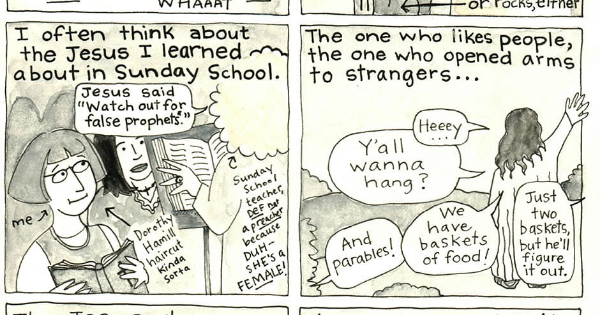 WHAAAT
or rocks, either
I often think about
the Jesus I learned
about in Sunday School.
Jesus said
"Watch out for
false prophets."
me
Dorothy
Hamill
haircut
kinda
sorta
Sunday
School
teacher,
DEF NOT
a preacher
because
DUH—
SHE'S A
FEMALE!
The one who likes people,
the one who opened arms
to strangers...
Heeey....
Y'all
wanna
hang?
We
have
baskets
of food!
And
parables!
Just
two
baskets,
but he'll
figure
it out.